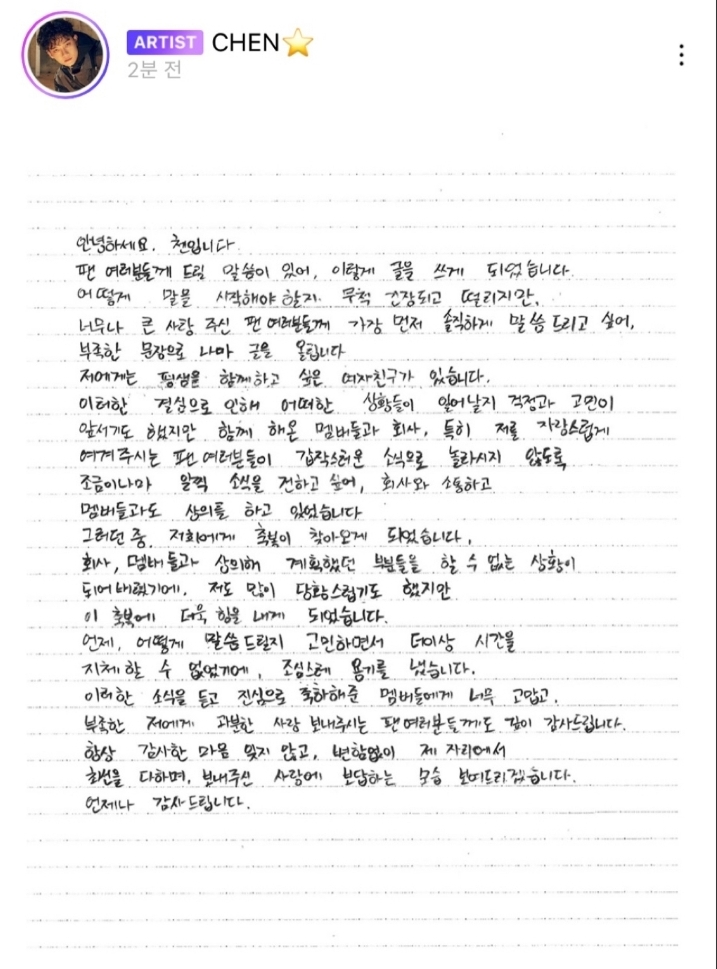 ARTIST CHEN⭐
2분 전
안녕하세요. 첸입니다
팬 여러분들게 드릴 말씀이 있어, 이렇게 글을 쓰게 되었습니다.
어떻게 말을 시작해야 할지 무척 긴장되고 떨리지만,
너무나 큰 사랑 주신 팬 여러분들께 가장 먼저 솔직하게 말씀드리고 싶어,
부족한 문장으로 나마 글을 올립니다
저에게는 평생을 함께하고 싶은 여자친구가 있습니다.
이러한 결심으로 인해 어떠한 상황들이 일어날지 걱정과 고민이
앞서기도 했지만 함께 해온 멤버들과 회사, 특히 저를 자랑스럽게
여겨주시는 팬 여러분들이 갑작스러운 소식으로 놀라시지 않도록
조금이나마 일찍 소식을 전하고 싶어, 회사와 소통하고
멤버들과도 상의를 하고 있었습니다
그러던 중, 저희에게 축복이 찾아오게 되었습니다.
회사, 멤버들과 상의해 계획했던 부분들을 할 수 없는 상황이
되어버렸기에, 저도 많이 당황스럽기도 했지만
이 축복에 더욱 힘을 내게 되었습니다.
언제, 어떻게 말씀드릴지 고민하면서 더이상 시간을
지체할 수 없었기에, 조심스레 용기를 냈습니다.
이러한 소식을 듣고 진심으로 축하해준 멤버들에게 너무 고맙고,
부족한 저에게 과분한 사랑 보내주시는 팬 여러분들께도 깊이 감사드립니다.
항상 감사한 마음 잊지 않고, 변함없이 제 자리에서
최선을 다하며, 보내주신 사랑에 보답하는 모습 보여드리겠습니다.
언제나 감사드립니다.